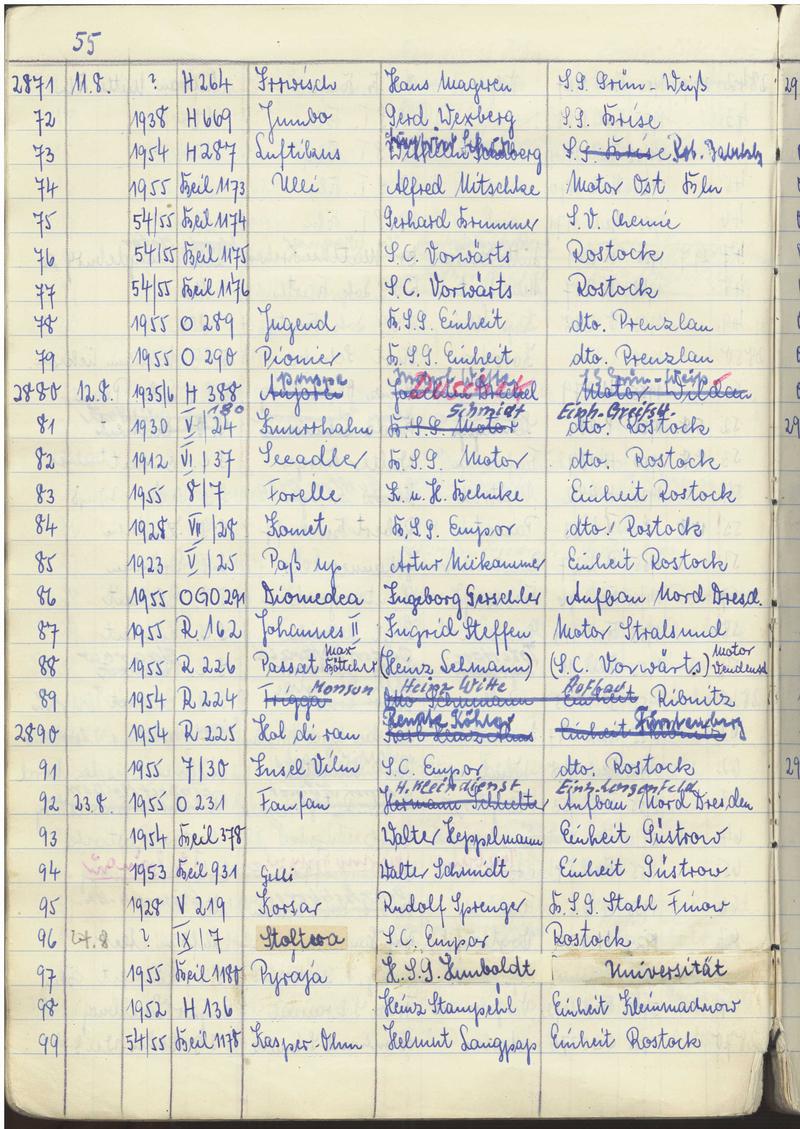 55
2871 11.8. ? H 264 Irrwisch Hans Mageren S.G. Grün-Weiß
72 1938 H 669 Jumbo Gerd Wexberg S.G. Brise
73 1954 H 287 Luftikus S.G. Brise
74 1955 Beil 1173 Ulli Alfred Mitschke Motor Ost Bln
75 54/55 Beil 1174 Gerhard Brummer S.V. Chemie
76 54/55 Beil 1175 S.C. Vorwärts Rostock
77 54/55 Beil 1176 S.C. Vorwärts Rostock
78 1955 O 289 Jugend B.S.G. Einheit dto. Prenzlau
79 1955 O 290 Pionier B.S.G. Einheit dto. Prenzlau
S.G. Grün-Weiß
2880 12.8. 1935/6 H 388 Motor Wildau
180 Schmidt Einh. Greifsw.
81 1930 V/24 Knurrhahn B.S.G. Motor dto. Rostock
82 1912 VI/37 Seeadler B.S.G. Motor dto. Rostock
83 1955 8/7 Forelle K. u. H. Behnke Einheit Rostock
84 1928 VII/28 Komet B.S.G. Empor dto. Rostock
85 1923 V/25 Paß up Artur Niekammer Einheit Rostock
86 1955 OGO 291 Diomedea Ingeborg Gerschler Aufbau Nord Dresd.
87 1955 R. 162 Johannes II Ingrid Steffen Motor Stralsund
Max Motor
88 1955 R 226 Passat Böttcher (Heinz Lehmann) (S.C. Vorwärts)
Monsun Heinz Witte Aufbau
89 1954 R 224 Frigga Otto Schumann Einheit Ribnitz
Renate Köhler Fürstenberg
2890 1954 R 225 Hol di ran Einheit Ribnitz
91 1955 7/30 Insel Vilm S.C. Empor dto. Rostock
H. Kleindienst Einh. Lengenfeld
92 23.8. 1955 O 231 Fanfan Hermann Schlechter Aufbau Nord Dresden
93 1954 Beil 378 Walter Heppelmann Einheit Güstrow
94 1953 Beil 931 Gilli Walter Schmidt Einheit Güstrow
95 1928 V 219 Korsar Rudolf Sprenger B.S.G. Stahl Finow
96 24.8 ? IX/7 Stoltera S.C. Empor Rostock
97 1955 Beil 1180 Pyraja H.S.G. Humboldt Universität
98 1952 H 136 Heinz Stampehl Einheit Kleinmachnow
99 54/55 Beil 1178 Kasper-Ohm Helmut Langpap Einheit Rostock
29
29
29